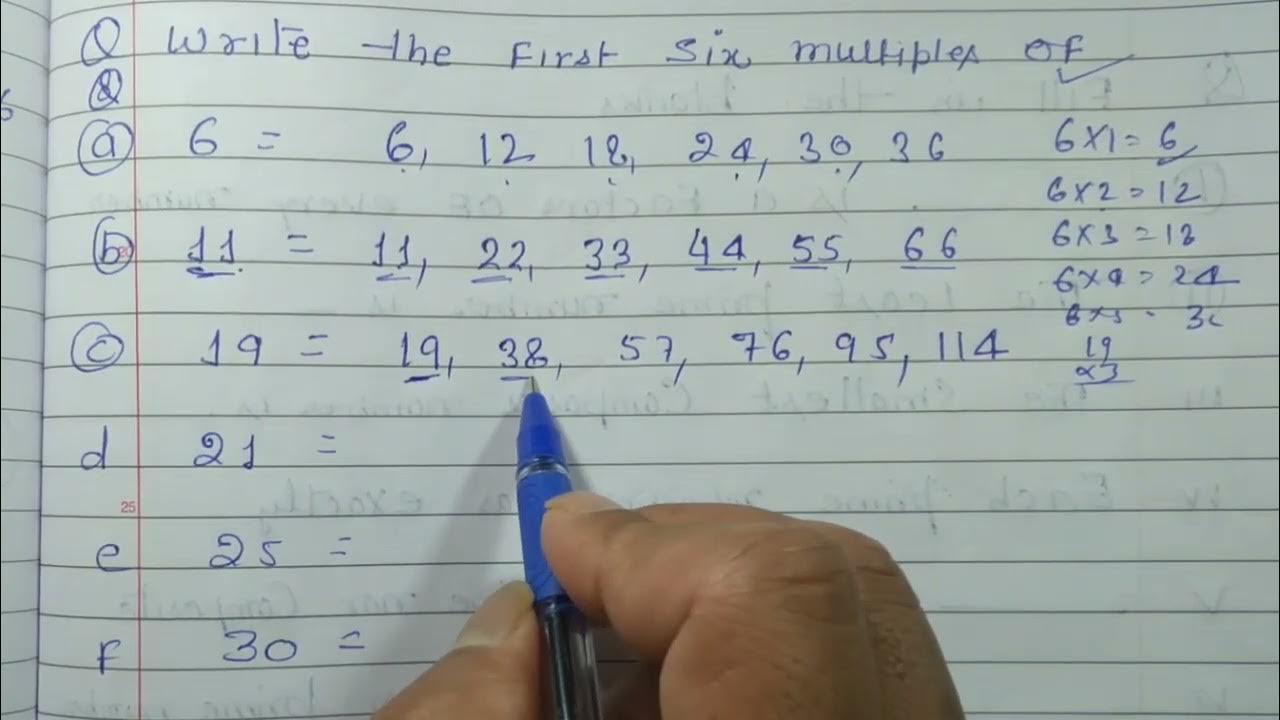 Q Write the First Six multiples of
Q
(a) 6 = 6, 12 18, 24, 30, 36
6×1=6
6×2=12
(b) 11 = 11, 22, 33, 44, 55, 66
6×3=18
6×4=24
6×5=30
(c) 19 = 19, 38, 57, 76, 95, 114
19
×3
d 21 =
25
e 25 =
F 30 =